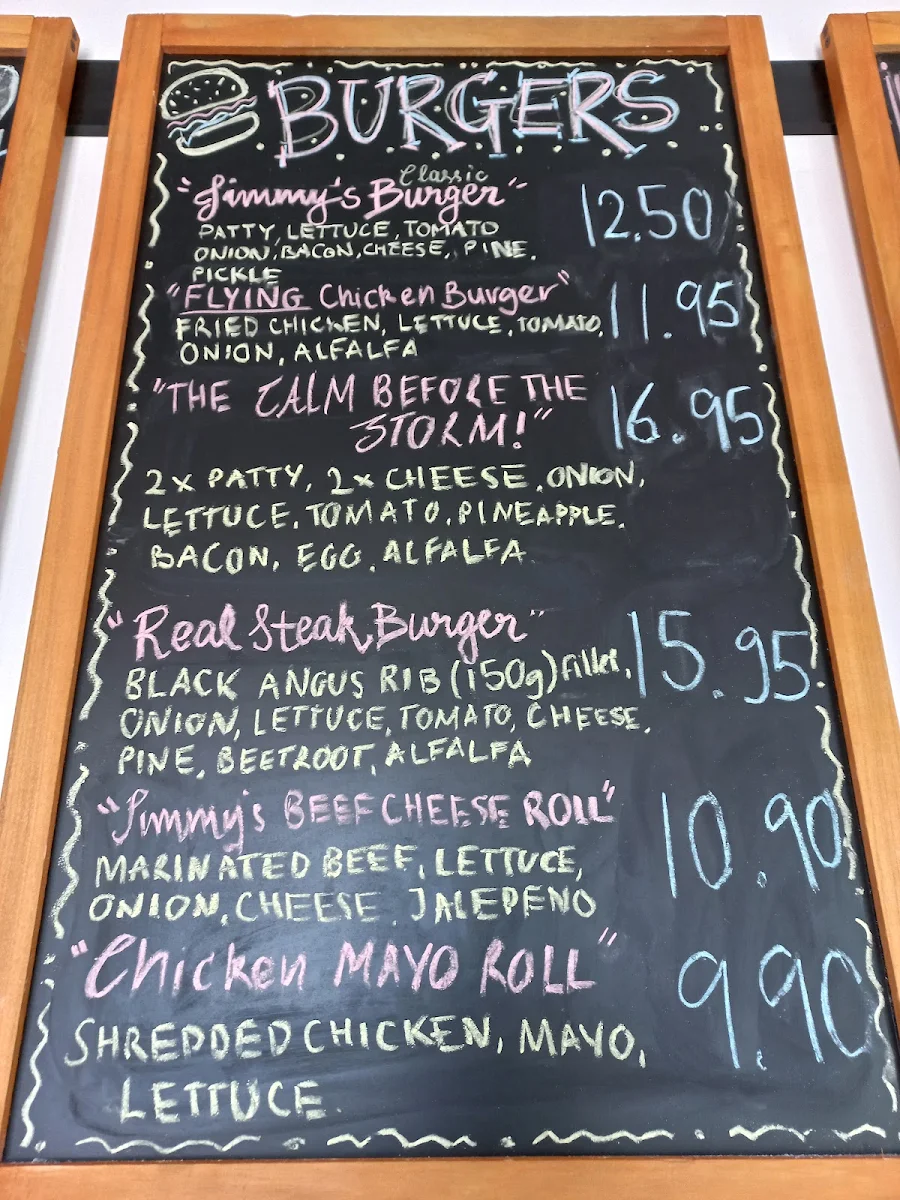 BURGERS
Classic
"Jimmy's Burger" 12.50
PATTY, LETTUCE, TOMATO
ONION, BACON, CHEESE, PINE.
PICKLE
"FLYING Chicken Burger" 11.95
FRIED CHICKEN, LETTUCE, TOMATO,
ONION, ALFALFA
"THE CALM BEFORE THE
STORM!" 16.95
2x PATTY, 2x CHEESE, ONION,
LETTUCE, TOMATO, PINEAPPLE,
BACON, EGG, ALFALFA
"Real Steak Burger" 15.95
BLACK ANGUS RIB (150g) Fillet,
ONION, LETTUCE, TOMATO, CHEESE,
PINE, BEETROOT, ALFALFA
"Jimmy's BEEF CHEESE ROLL" 10.90
MARINATED BEEF, LETTUCE,
ONION, CHEESE, JALEPENO
"Chicken MAYO ROLL" 9.90
SHREDDED CHICKEN, MAYO,
LETTUCE.